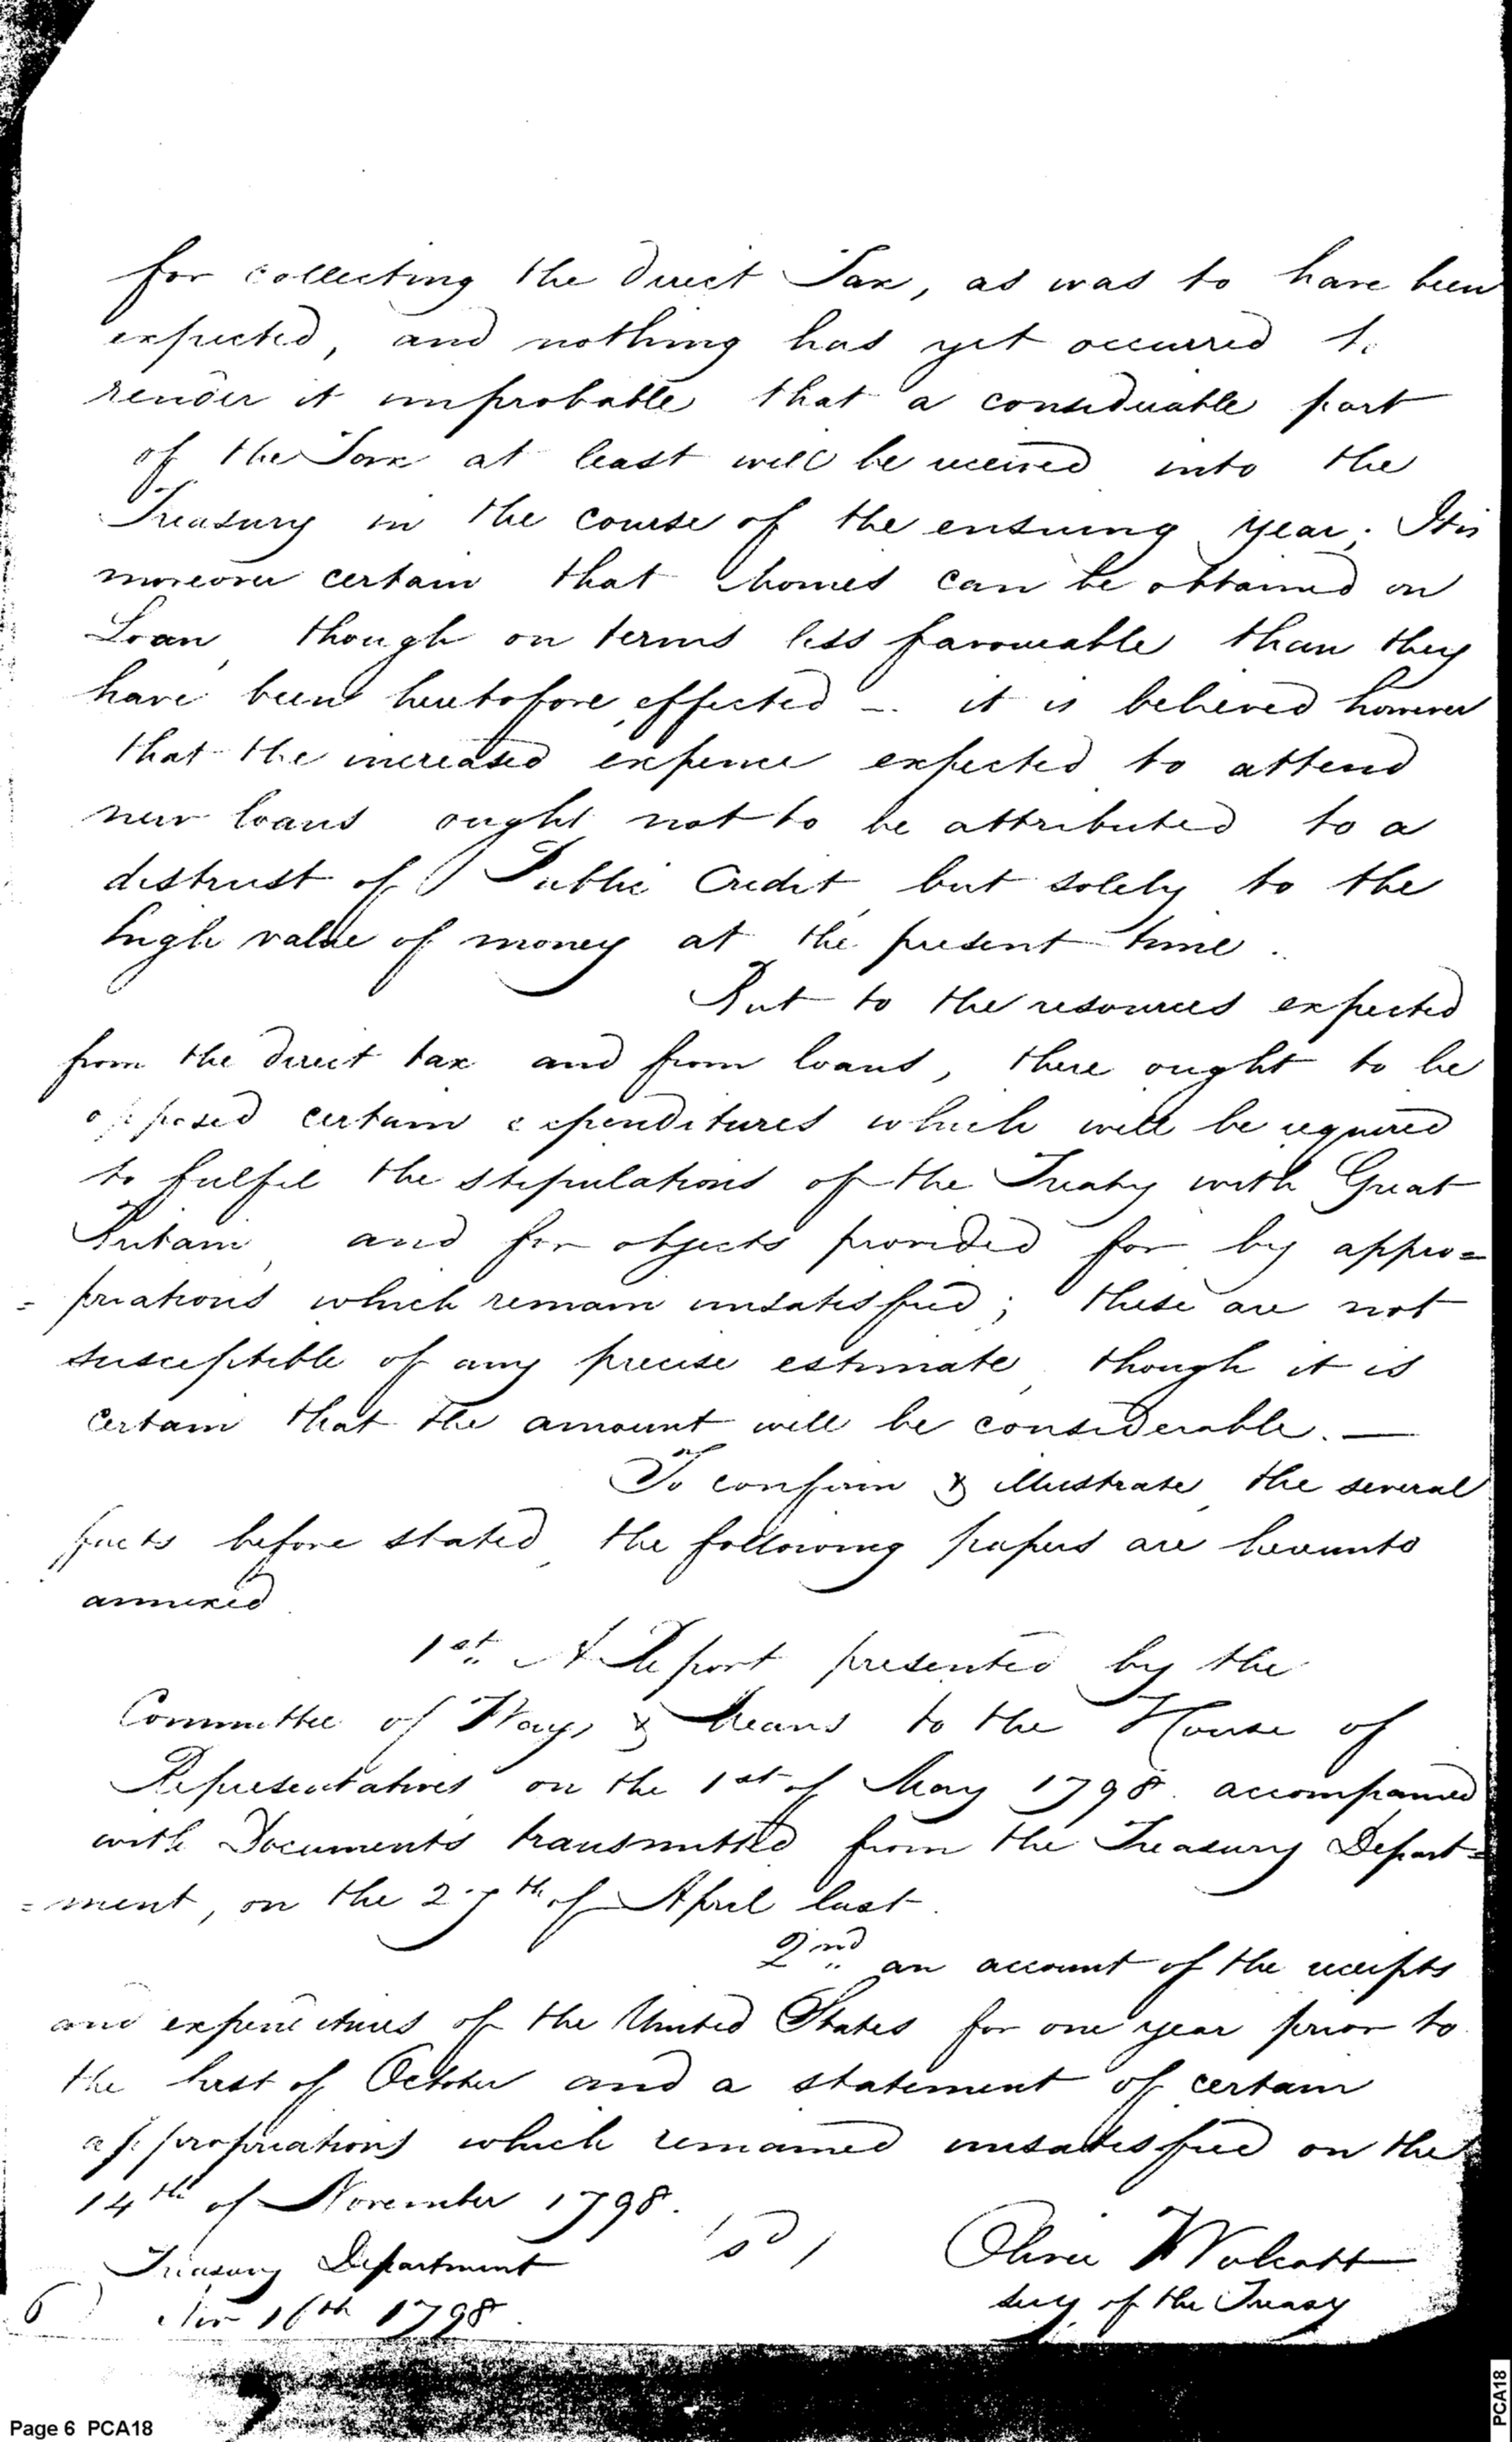 for collecting the direct Tax, as was to have been
expected, and nothing has yet occurred to
render it improbable that a considerable part
of the Tax at least will be received into the
Treasury in the course of the ensuing year. It is
moreover certain that monies can be obtained on
Loan, though on terms less favourable than they
have been heretofore effected -. it is believed however
that the increased expence expected to attend
new loans ought not to be attributed to a
distrust of Public Credit, but solely to the
high value of money at the present time.
But to the resources expected
from the direct tax and from loans, there ought to be
opposed certain expenditures which will be required
to fulfil the stipulations of the Treaty with Great
Britain, and for objects provided for by appro=
=priations which remain unsatisfied; these are not
susceptible of any precise estimate, though it is
certain that the amount will be considerable. —
To confirm & illustrate, the several
facts before stated, the following papers are hereunto
annexed.
1st. A Report presented by the
Committee of Ways & Means to the House of
Representatives on the 1st of May 1798. accompanied
with Documents transmitted from the Treasury Depart=
=ment, on the 27th of April last.
2nd. an account of the receipts
and expenditures of the United States for one year prior to
the first of October and a statement of certain
appropriations which remained unsatisfied on the
14th of November 1798.
/sd/ Oliver Wolcott
Treasury Department
Secy of the Treasy
6) Nov 16th 1798.
Page 6 PCA18
PCA18